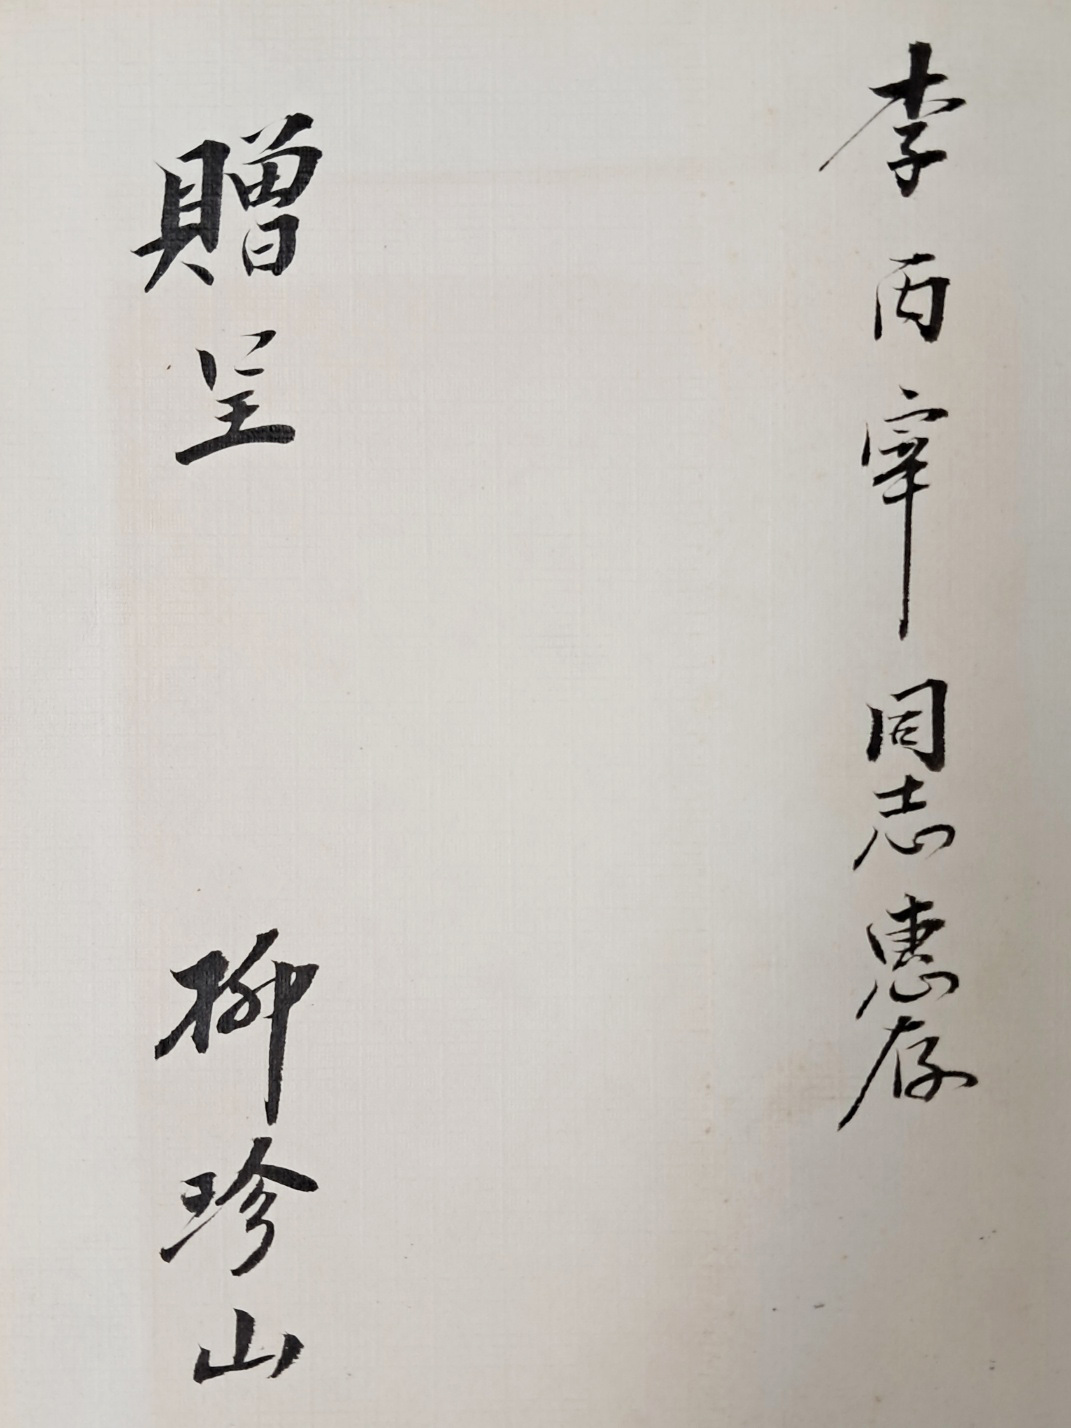 李丙宰同志惠存
贈呈 柳珍山